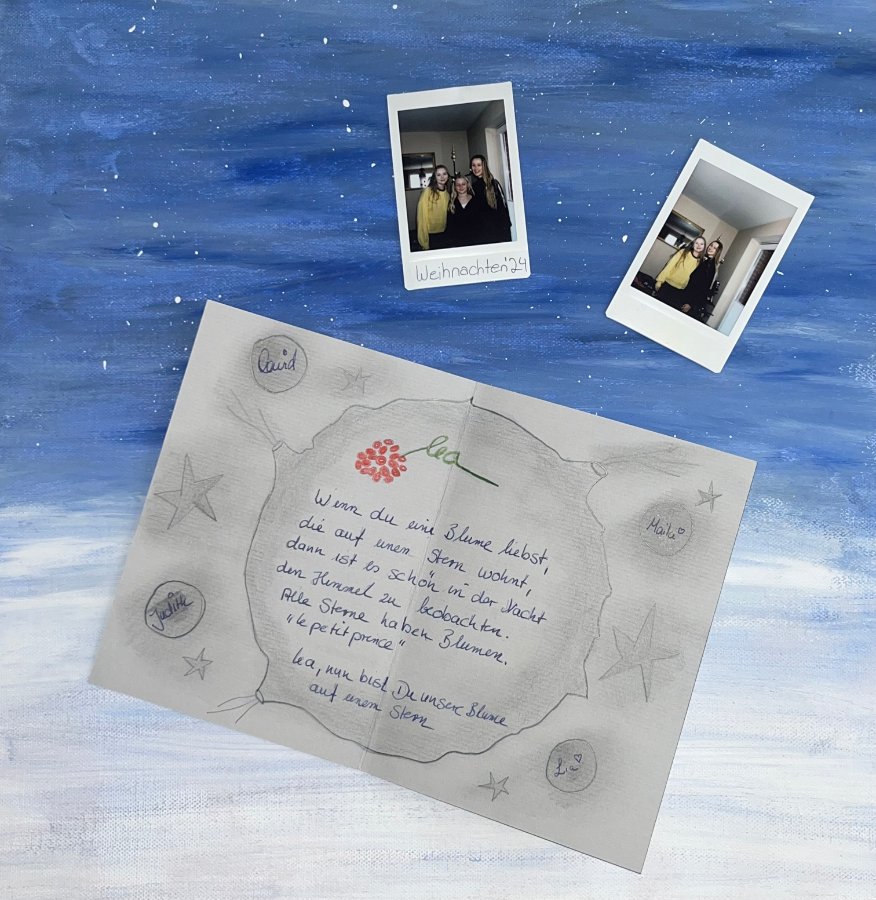 Weihnachten'24
David
Lea
Maila
Wenn du eine Blume liebst,
die auf einem Stern wohnt,
dann ist es schön in der Nacht
den Himmel zu beobachten.
Alle Sterne haben Blumen.
"le petit prince"
Judith
Lea, nun bist Du unsere Blume
auf einem Stern
Lia